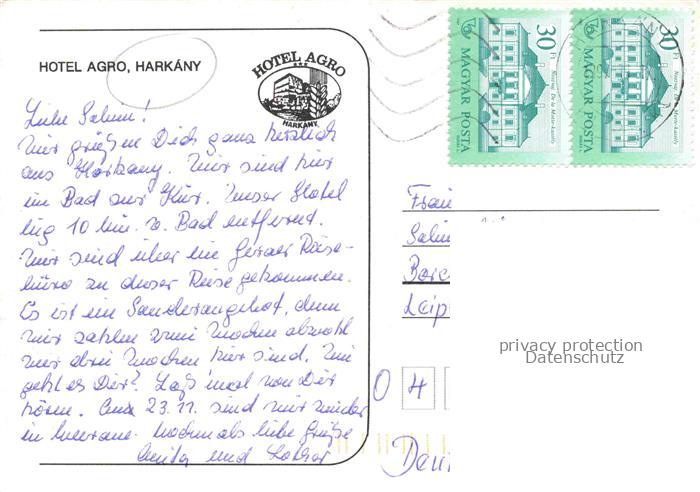 HOTEL AGRO, HARKÁNY
HOTEL AGRO
HARKÁNY
30 Ft
MAGYAR POSTA
Nosznay De la Motte-kastély
30 Ft
MAGYAR POSTA
Noszvaj De la Motte-kastély
Liebe Sabine!
Wir grüßen Dich ganz herzlich
aus Harkany. Wir sind hier
im Bad zur Kur. Unser Hotel
lieg 10 Min. v. Bad entfernt.
Wir sind über ein Geraer Reise-
büro zu dieser Reise gekommen.
Es ist ein Sonderangebot, denn
wir zahlen zwei Wochen obwohl
wir drei Wochen hier sind. Wie
geht es Dir? Laß mal von Dir
hören. Am 23.11. sind wir wieder
in Meerane. Nochmals liebe Grüße
Anita und Lothar
Frau
Leip
0 4
Deu
privacy protection
Datenschutz